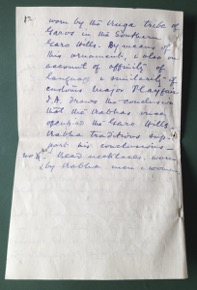 12 worn by the Ruga tribe of
Garos in the Southern
Garo Hills. By means of
this ornament, & also on
account of affinity of
language & similarity of
customs Major Playfair
I.A. draws the conclusion
that the Rabhas once
occupied the Garo Hills
Rabha traditions sup-
port his conclusions—
Bead necklaces worn
by Rabha men & women